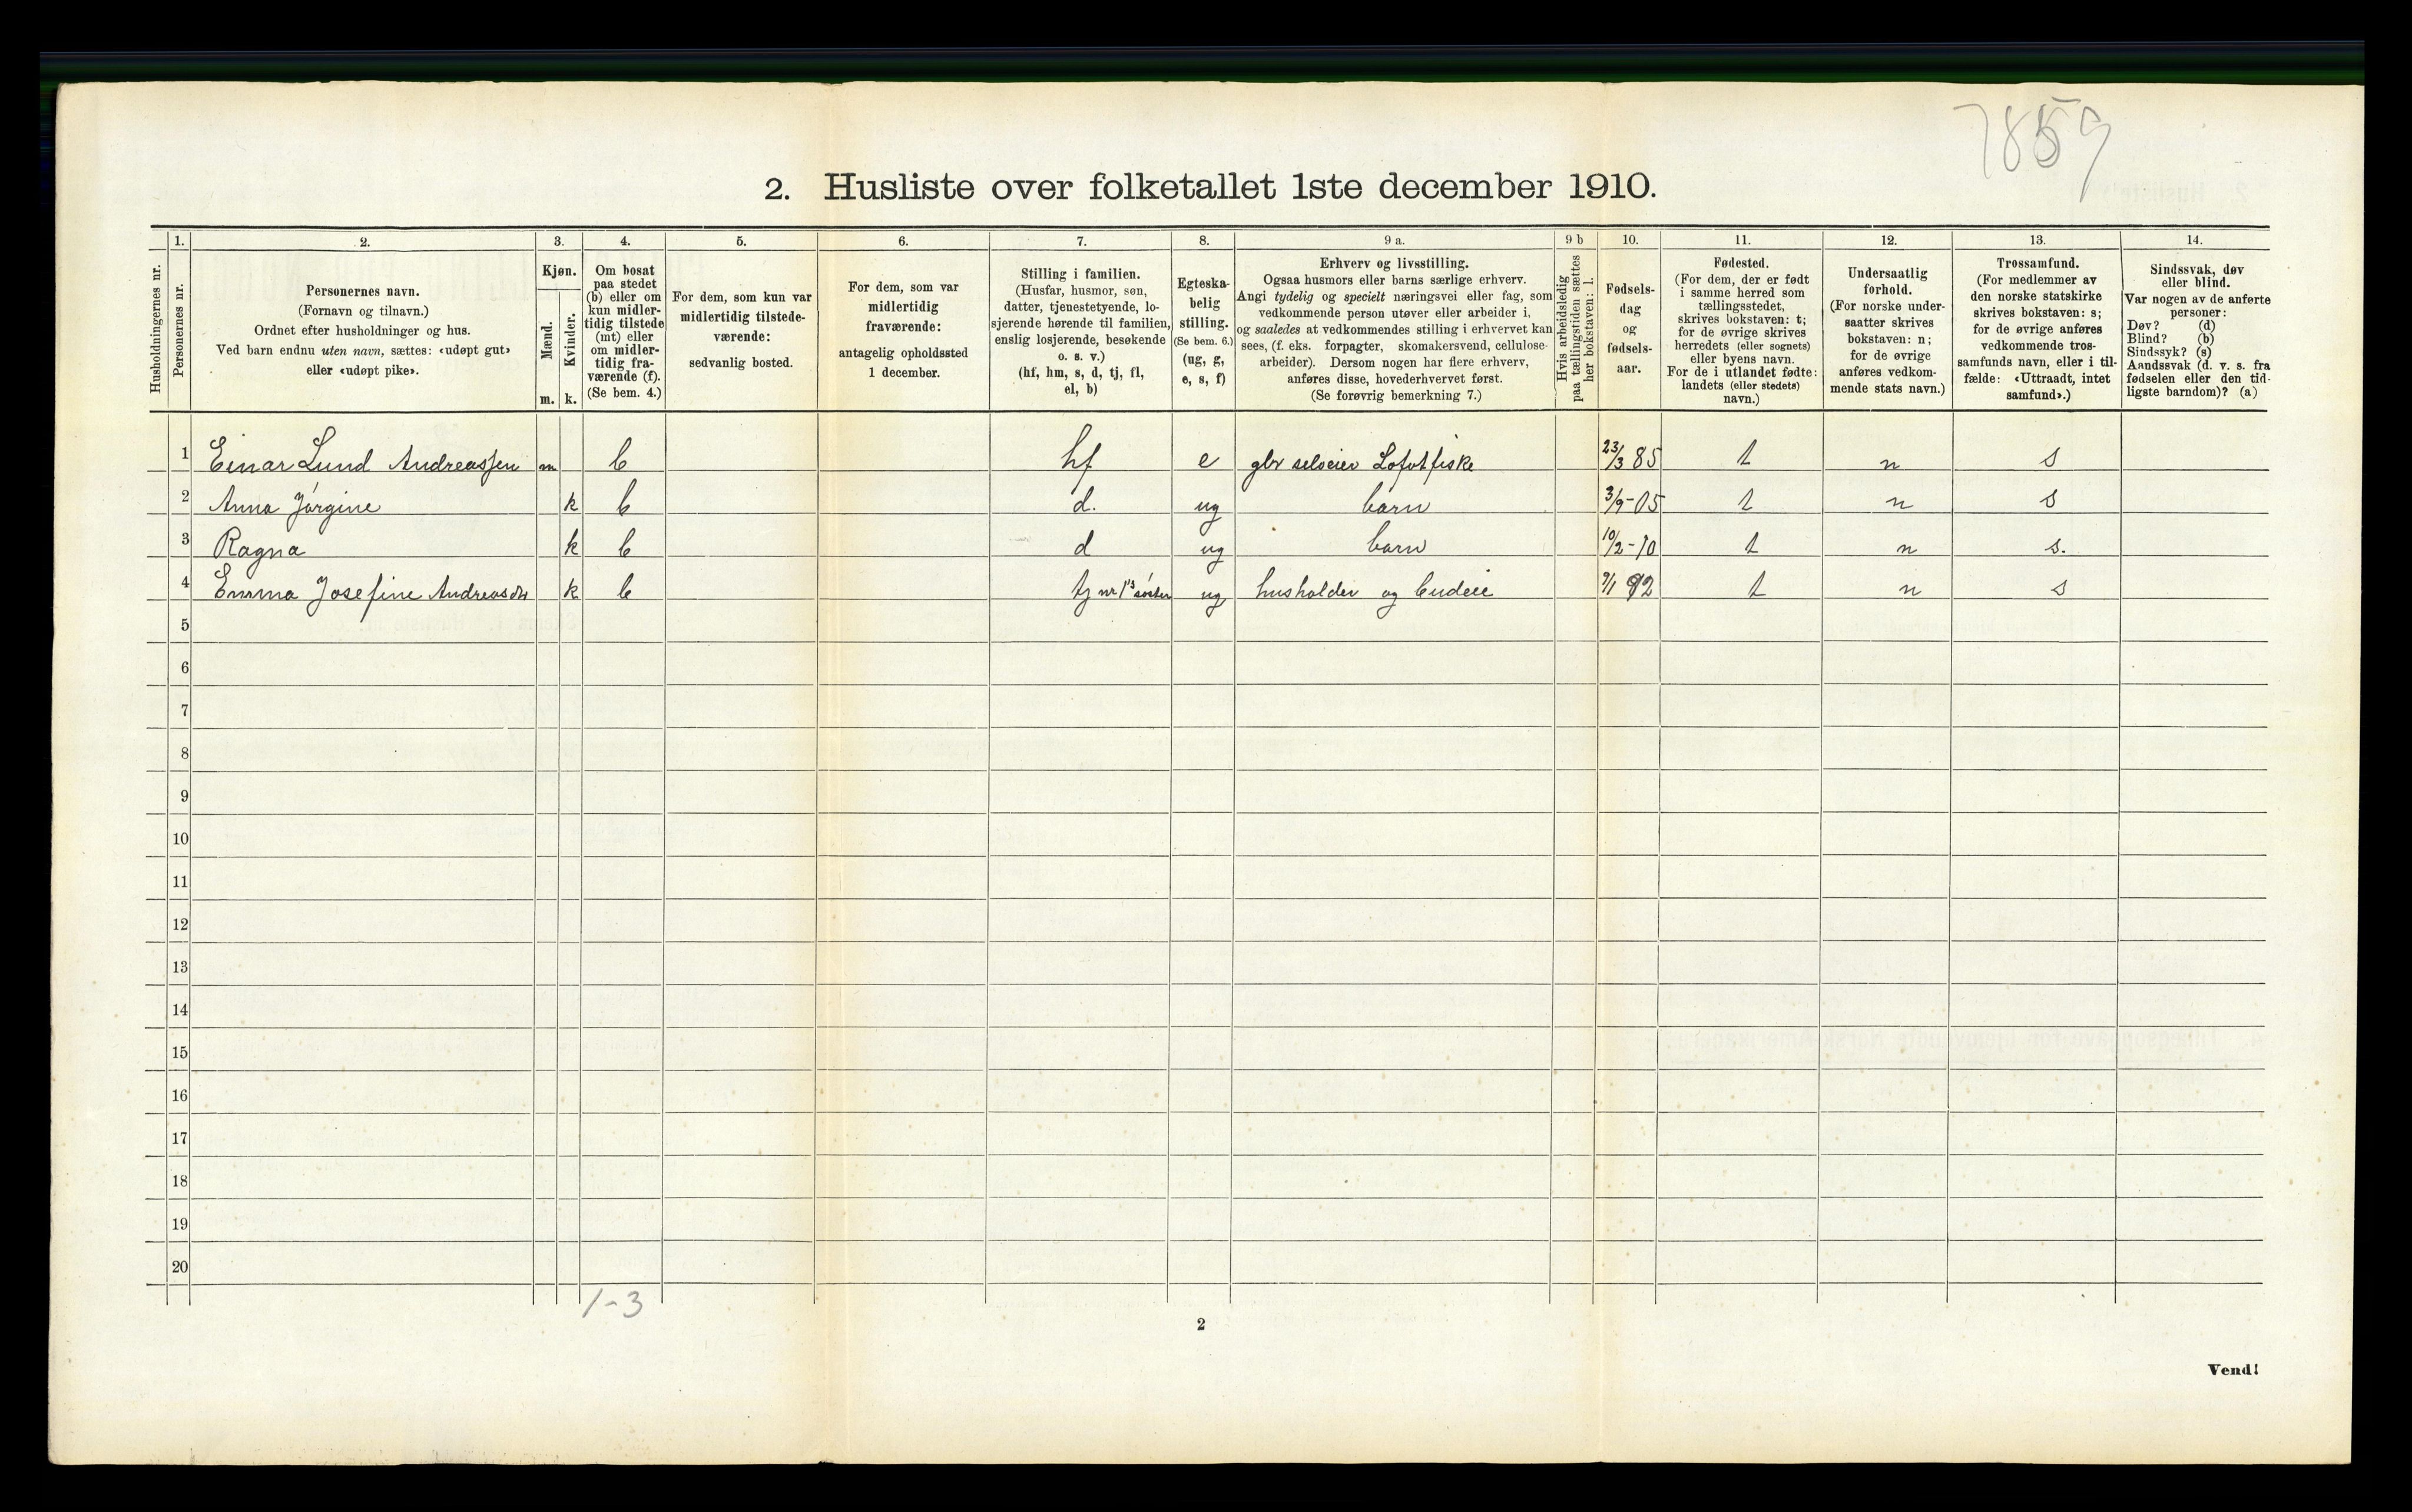 7859
2. Husliste over folketallet 1ste december 1910.
Husholdningernes nr.
1.
Personernes nr.
2.
Personernes navn.
(Fornavn og tilnavn.)
Ordnet efter husholdninger og hus.
Ved barn endnu uten navn, sættes: «udøpt gut»
eller «udøpt pike».
3.
Kjøn.
Mænd.
Kvinder.
m. k.
4.
Om bosat
paa stedet
(b) eller om
kun midler-
tidig tilstede
(mt) eller
om midler-
tidig fra-
værende (f).
(Se bem. 4.)
5.
For dem, som kun var
midlertidig tilstede-
værende:
sedvanlig bosted.
6.
For dem, som var
midlertidig
fraværende:
antagelig opholdssted
1 december.
7.
Stilling i familien.
(Husfar, husmor, søn,
datter, tjenestetyende, lo-
sjerende hørende til familien,
enslig losjerende, besøkende
o. s. v.)
(hf, hm, s, d, tj, fl,
el, b)
8.
Egteska-
belig
stilling.
(Se bem. 6.)
(ug, g,
e, s, f)
9 a.
Erhverv og livsstilling.
Ogsaa husmors eller barns særlige erhverv.
Angi tydelig og specielt næringsvei eller fag, som
vedkommende person utøver eller arbeider i,
og saaledes at vedkommendes stilling i erhvervet kan
sees, (f. eks. forpagter, skomakersvend, cellulose-
arbeider). Dersom nogen har flere erhverv,
anføres disse, hovederhvervet først.
(Se forøvrig bemerkning 7.)
9 b
Hvis arbeidsledig
paa tællingstiden sættes
her bokstaven: l.
10.
Fødsels-
dag
og
fødsels-
aar.
11.
Fødested.
(For dem, der er født
i samme herred som
tællingsstedet,
skrives bokstaven: t;
for de øvrige skrives
herredets (eller sognets)
eller byens navn.
For de i utlandet fødte:
landets (eller stedets)
navn.)
12.
Undersaatlig
forhold.
(For norske under-
saatter skrives
bokstaven: n;
for de øvrige
anføres vedkom-
mende stats navn.)
13.
Trossamfund.
(For medlemmer av
den norske statskirke
skrives bokstaven: s;
for de øvrige anføres
vedkommende tros-
samfunds navn, eller i til-
fælde: «Uttraadt, intet
samfund».)
14.
Sindssvak, døv
eller blind.
Var nogen av de anførte
personer:
Døv? (d)
Blind? (b)
Sindssyk? (s)
Aandssvak (d. v. s. fra
fødselen eller den tid-
ligste barndom)? (a)
1 Einar Lund Andreassen m b hf e gbr selveier Lofotfiske 23/3 85 t n s
2 Anna Jørgine k b d. ug barn 3/9-05 t n s
3 Ragna k b d ug barn 10/2-10 t n s.
4 Emma Josefine Andreasdtr k b tj nr 1's søster ug husholder og budeie 9/1 92 t n s
5
6
7
8
9
10
11
12
13
14
15
16
17
18
19
20
1-3
2
Vend!